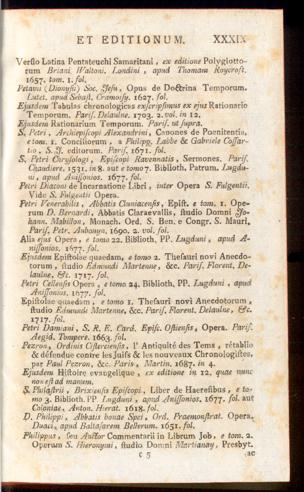 ET EDITIONUM. XXXIX
Versio Latina Pentateuchi Samaritani, ex editione Polyglotto-
rum Briani Waltoni. Londini, apud Thomam Roycroft.
1657. tom. 1. fol.
Petavii (Dionysii) Soc. Jesu, Opus de Doctrina Temporum.
Lutet. apud Sebast. Cramoisy. 1627. fol.
Ejusdem Tabulas chronologicas exscripsimus ex ejus Rationario
Temporum. Paris. Delaulne. 1703. 2. vol. in 12.
Ejusdem Rationarium Temporum. Paris. ut supra.
S. Petri, Archiepiscopi Alexandrini, Canones de Poenitentia,
e tom. 1. Conciliorum, a Philipp. Labbe & Gabriele Cossar-
tio, S. J. editorum. Paris. 1671. fol.
S. Petri Chrysologi, Episcopi Ravennatis, Sermones. Paris.
Chaudiere, 1531. in 8. aut e tomo 7. Biblioth. Patrum. Lugdu-
ni, apud Anissonios. 1677. fol.
Petri Diaconi de Incarnatione Libri, inter Opera S. Fulgentii.
Vide S. Fulgentii Opera.
Petri Venerabilis, Abbatis Cluniacensis, Epist. e tom. 1. Ope-
rum D. Bernardi, Abbatis Claraevallis, studio Domni Jo-
hann. Mabillon, Monach. Ord. S. Ben. e Congr. S. Mauri,
Paris, Petr. Aubouyn. 1690. 2. vol. fol.
Alia ejus Opera, e tomo 22. Biblioth. PP. Lugduni, apud A-
nissonios, 1677. fol.
Ejusdem Epistolae quaedam, e tomo 2. Thesauri novi Anecdo-
torum, studio Edmundi Martenne, &c. Paris. Florent. De-
laulne, &c. 1717. fol.
Petri Cellensis Opera, e tomo 24. Biblioth. PP. Lugduni, apud
Anissonios, 1677. fol.
Epistolae quaedam, e tomo 1. Thesauri novi Anecdotorum,
studio Edmundi Martenne, &c. Paris. Florent. Delaulne, &c.
1717. fol.
Petri Damiani, S. R. E. Card. Episc. Ostiensis, Opera. Paris.
Aegid. Tompere. 1663. fol.
Pezron, Ordinis Cisterciensis, l' Antiquité des Tems, rétablie
& défendue contre les Juifs & les nouveaux Chronologistes,
par Paul Pezron, &c. Paris, Martin. 1687. in 4.
Ejusdem Histoire evangelique, ex editione in 12. quae nunc
non est ad manum.
S. Philastrii, Brixiensis Episcopi, Liber de Haeresibus, e to-
mo 3. Biblioth. PP. Lugduni, apud Anissonios, 1677. fol. aut
Coloniae, Anton. Hierat. 1618. fol.
D. Philippi, Abbatis bonae Spei, Ord. Praemonstrat. Opera.
Duaci, apud Baltasarem Bellerum. 1651. fol.
Philippus, seu Auctor Commentarii in Librum Job, e tom. 2.
Operum S. Hieronymi, studio Domni Martianay, Presbyt.
c 5 ac